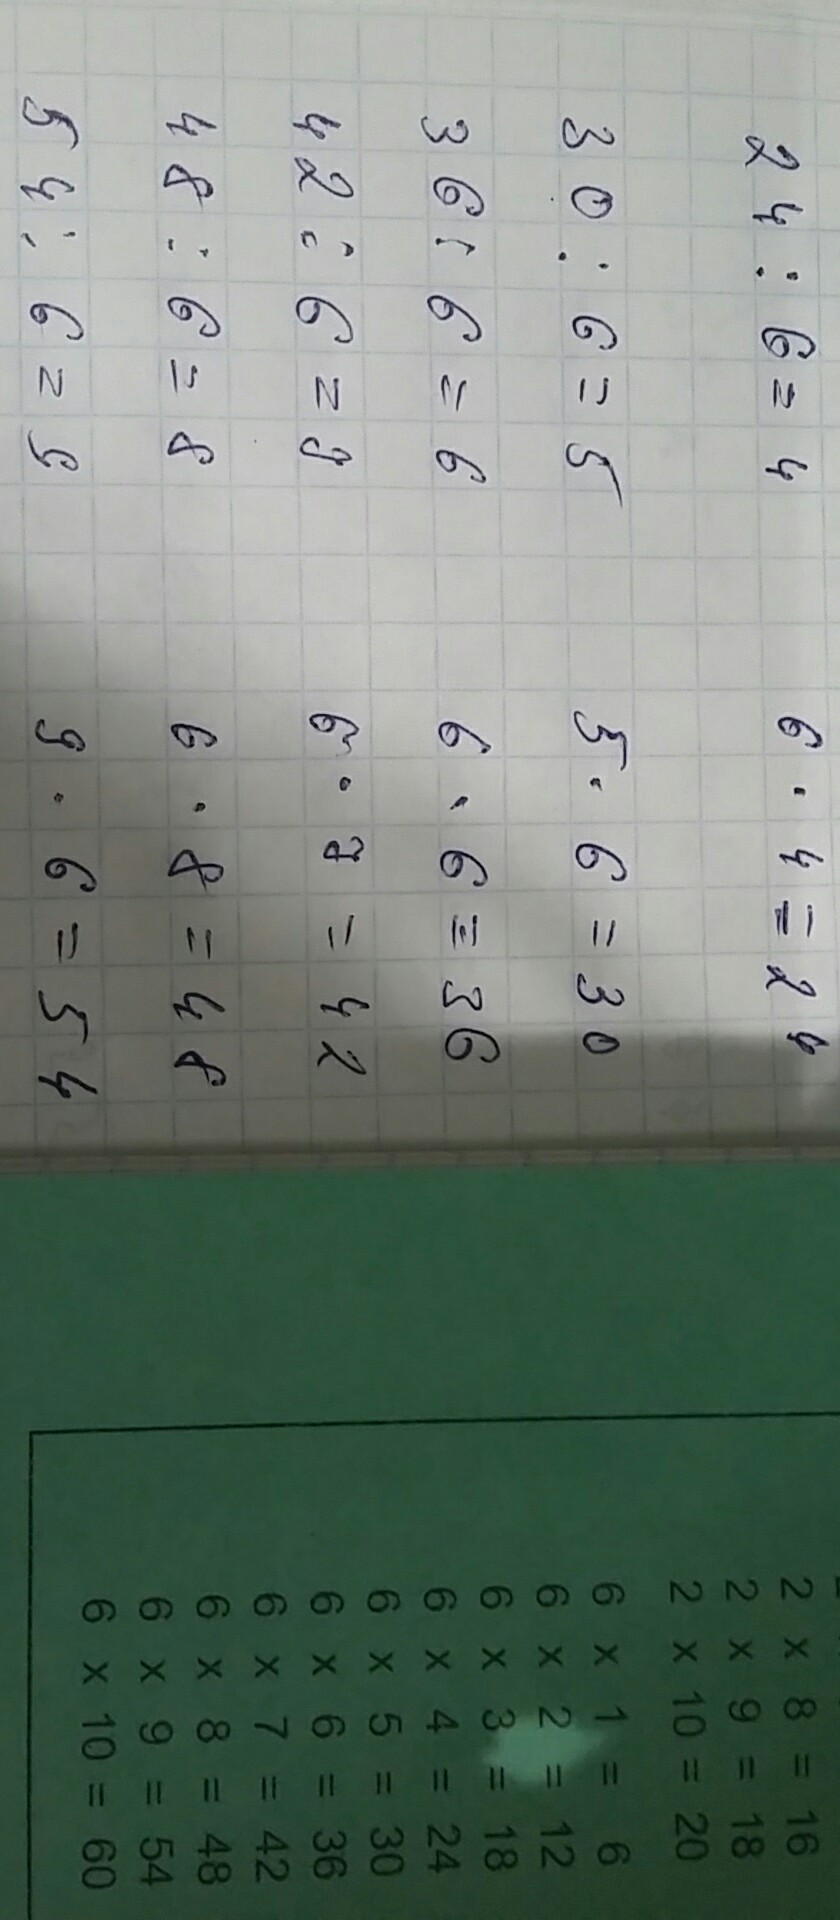 24 : 6 = 4 6 · 4 = 24
30 : 6 = 5 5 · 6 = 30
36 : 6 = 6 6 · 6 = 36
42 : 6 = 7 6 · 7 = 42
48 : 6 = 8 6 · 8 = 48
54 : 6 = 9 9 · 6 = 54
2 x 8 = 16
2 x 9 = 18
2 x 10 = 20
6 x 1 = 6
6 x 2 = 12
6 x 3 = 18
6 x 4 = 24
6 x 5 = 30
6 x 6 = 36
6 x 7 = 42
6 x 8 = 48
6 x 9 = 54
6 x 10 = 60